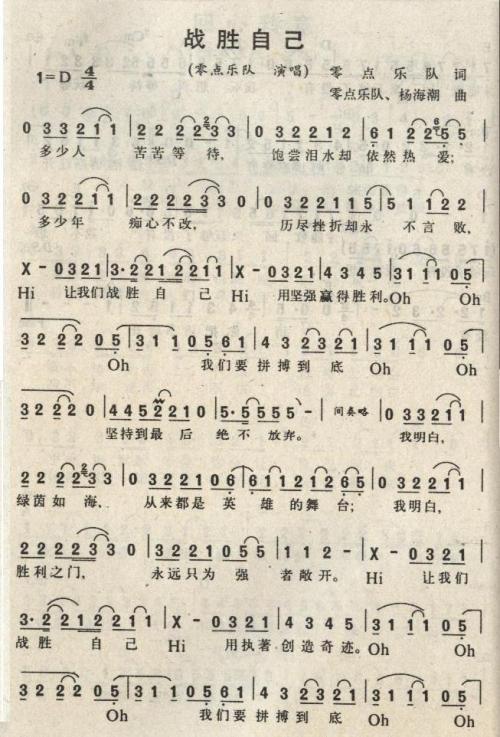 战胜自己
1=D 4/4
(零点乐队 演唱) 零点乐队 词
零点乐队、杨海潮 曲
0 3 3 2 1 1 | 2 2 2 2 3 3 | 0 3 2 2 1 2 | 6 1 2 2 5 5 |
多少人 苦苦等待, 饱尝泪水却 依然热 爱;
0 3 2 2 1 1 | 2 2 2 2 3 3 0 | 0 3 2 2 1 1 5 | 5 1 1 2 2 |
多少年 痴心不改, 历尽挫折却永 不言败,
X - 0 3 2 1 | 3· 2 2 1 2 2 1 1 | X - 0 3 2 1 | 4 3 4 5 | 3 1 1 1 0 5 |
Hi 让我们 战胜 自 己 Hi 用坚强 赢得胜利。Oh Oh
3 2 2 2 0 5 | 3 1 1 0 5 6 1 | 4 3 2 3 | 2 1 0 5 | 3 1 1 1 0 5 |
Oh 我们要 拼搏到 底 Oh Oh
3 2 2 2 0 | 4 4 5 2 2 2 1 0 | 5· 5 5 5 5 | 5 - 间奏略 | 0 3 3 2 1 1 |
坚持到最 后 绝不 放弃。 我明白,
2 2 2 2 3 3 | 0 3 2 2 1 0 6 | 6 1 1 2 1 2 6 5 | 0 3 2 2 1 1 |
绿茵如 海, 从来都是 英 雄的舞 台; 我明白,
2 2 2 2 3 3 0 | 3 2 2 1 0 5 5 | 1 1 2 - | X - 0 3 2 1 |
胜利之门, 永远只为 强 者敞开。 Hi 让我们
3· 2 2 1 2 2 1 1 | X - 0 3 2 1 | 4 3 4 5 | 3 1 1 1 0 5 |
战胜 自 己 Hi 用执著 创造奇迹。Oh Oh
3 2 2 2 0 5 | 3 1 1 0 5 6 1 | 4 3 2 3 | 2 1 0 5 | 3 1 1 1 0 5 |
Oh 我们要 拼搏到 底 Oh Oh